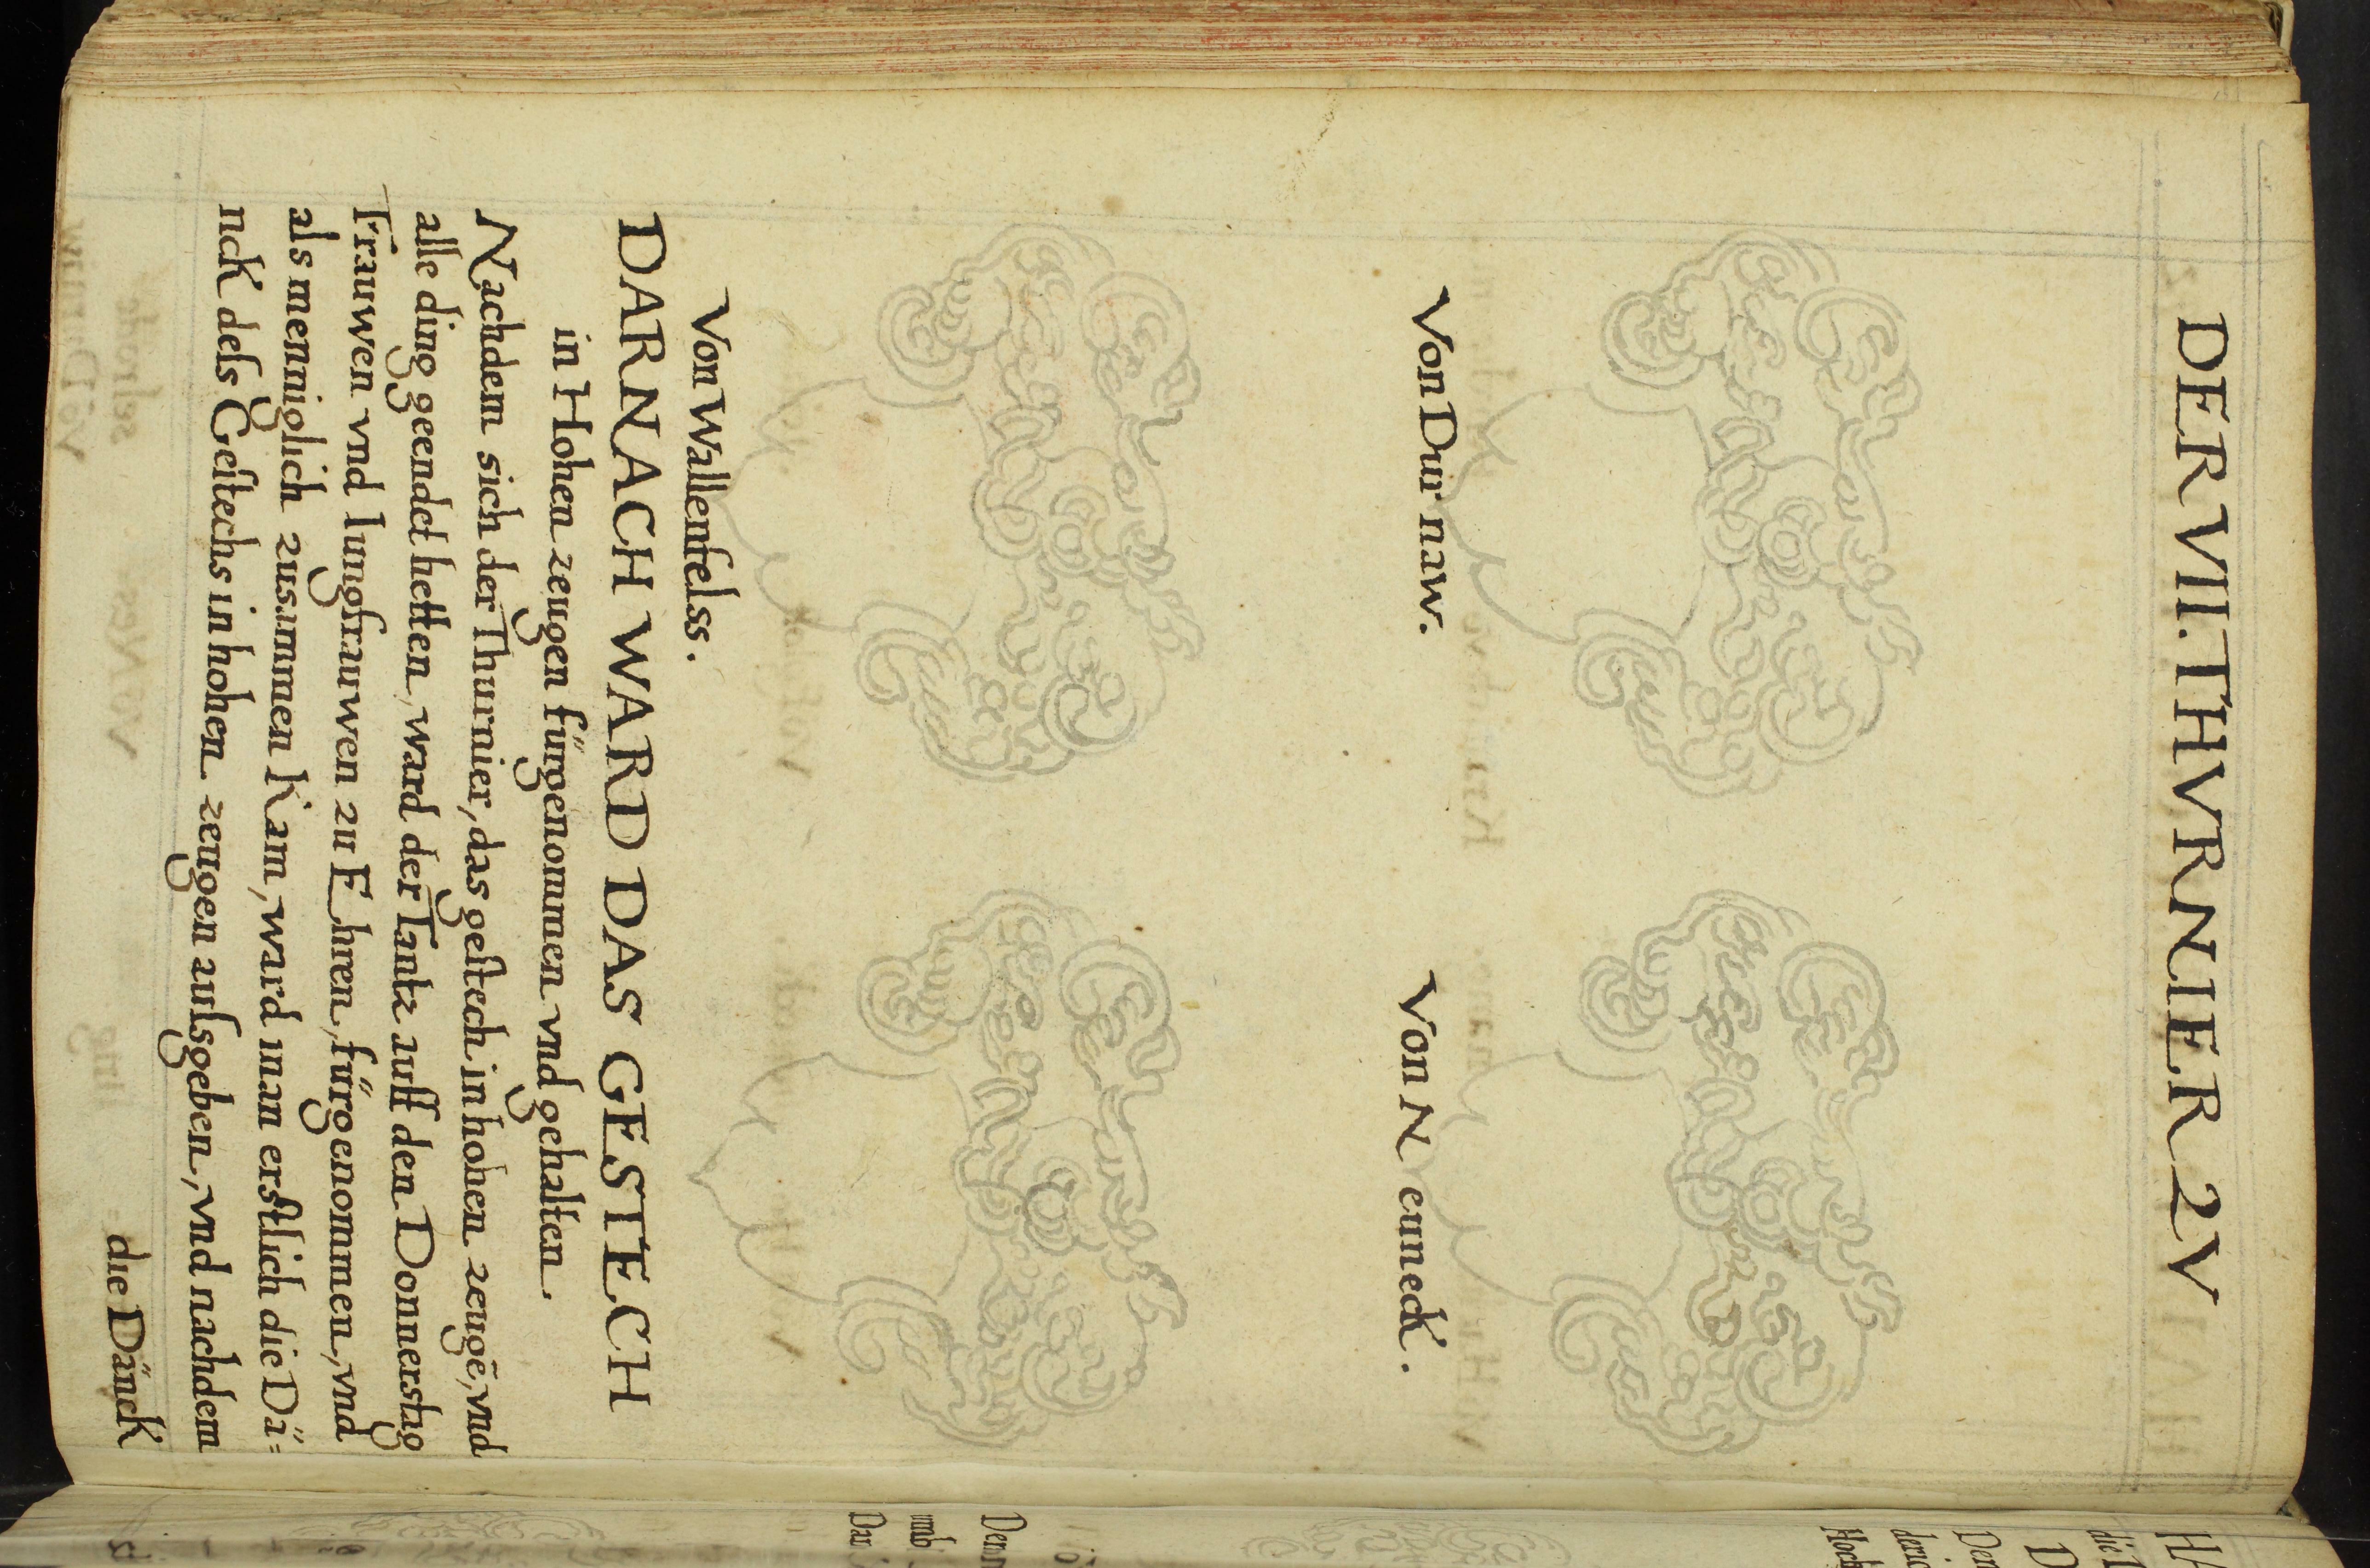 DER VII. THVRNIER ZV
Von Dür naw.
Von N euneck.
Von Wallenfelss.
DARNACH WARD DAS GESTECH
in Hohen zeugen fürgenommen vnd gehalten.
Nachdem sich der Thurnier, das geſtech in hohen zeugē, vnd
alle ding geendet hetten, ward der Tantz auff den Donnerstag
Frauwen vnd Iungfrauwen zu Ehren, fürgenommen, vnd
als menniglich zusammen Kam, ward man erſtlich die Dä=
nck deſs Geſtechs in hohen zeugen auſsgeben, vnd nachdem
die Dänck